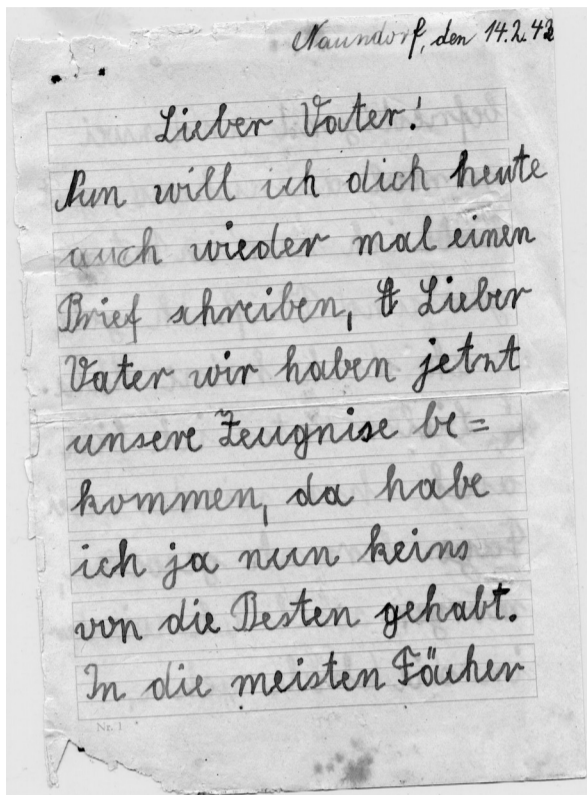 Naundorf, den 14.2.42
Lieber Vater!
Nun will ich dich heute
auch wieder mal einen
Brief schreiben, Lieber
Vater wir haben jetzt
unsere Zeugnise be=
kommen, da habe
ich ja nun keins
von die Besten gehabt.
In die meisten Fächer
Nr. 1